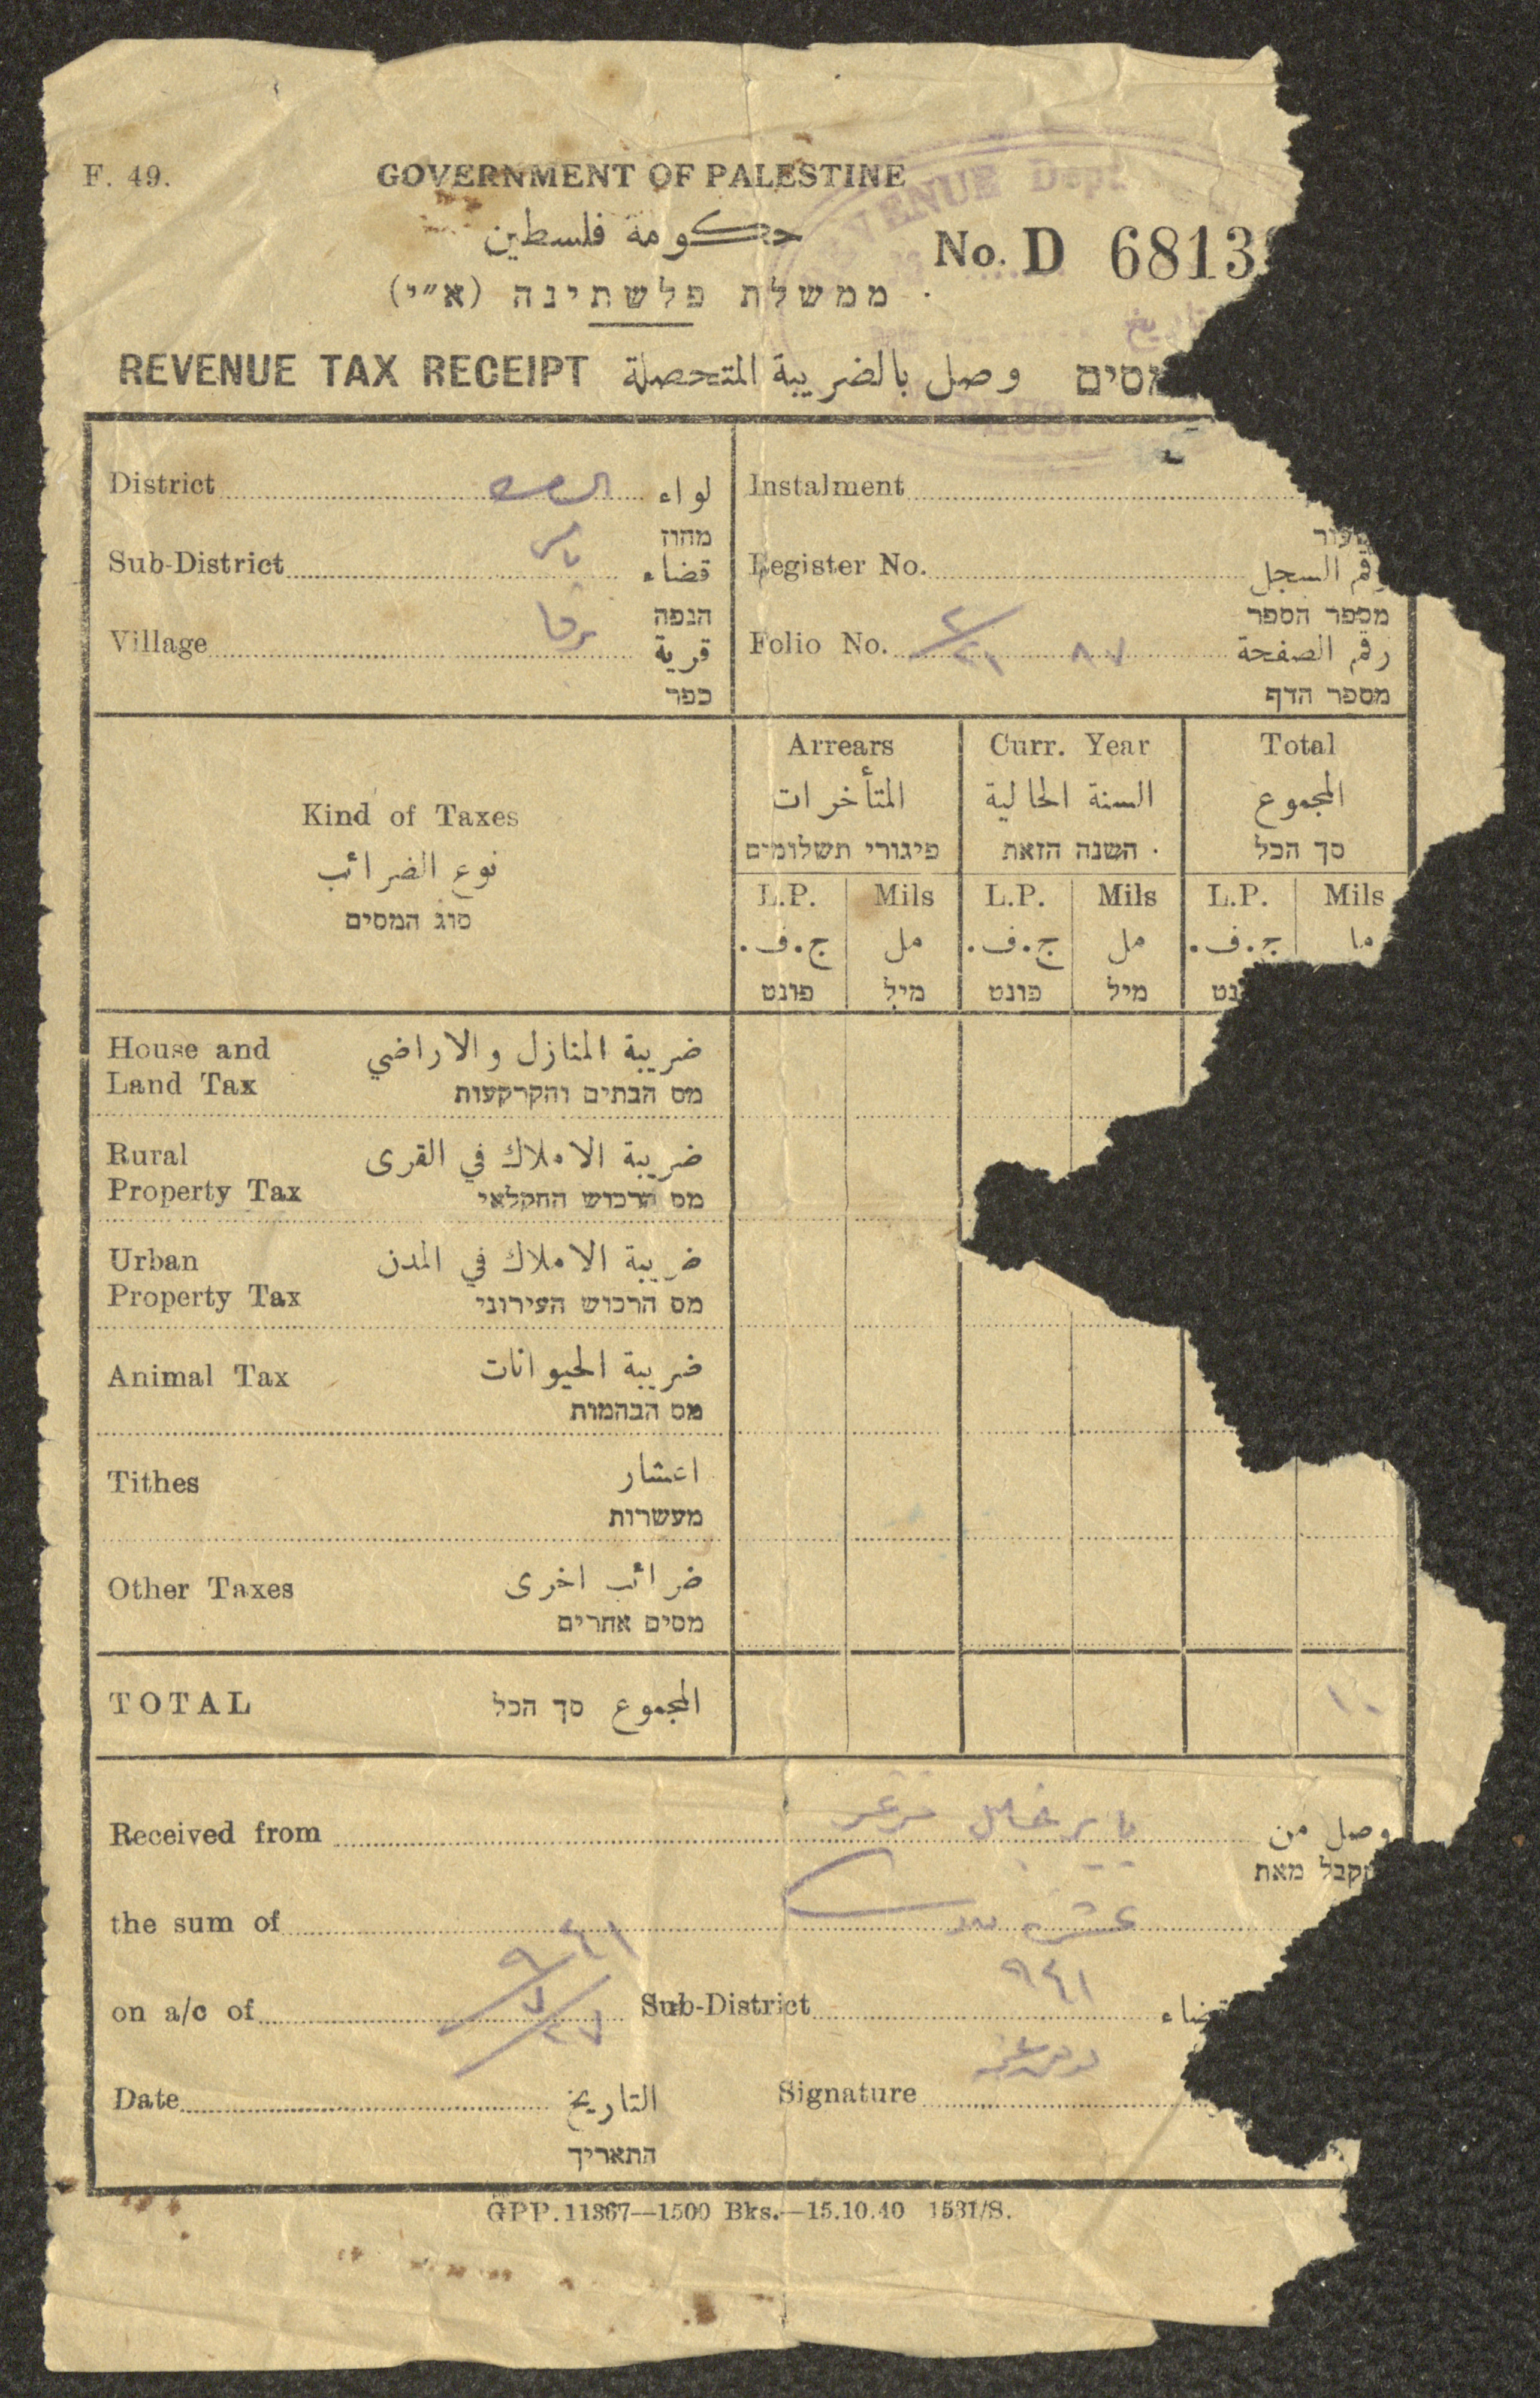 F. 49.
GOVERNMENT OF PALESTINE
REVENUE Dept.
حكومة فلسطين
No. D 6813
ממשלת פלשתינה (א״י)
تاريخ
REVENUE TAX RECEIPT وصل بالضريبة المتحصلة מסים
District لواء
מחוז
Sub-District قضاء
הנפה
Village برقا قرية
כפר
Instalment
Register No. رقم السجل
מספר הספר
Folio No. ٨٧ رقم الصفحة
מספר הדף
Kind of Taxes
نوع الضرائب
סוג המסים
Arrears Curr. Year Total
المتأخرات السنة الحالية المجموع
פיגורי תשלומים השנה הזאת סך הכל
L.P. Mils L.P. Mils L.P. Mils
ج.ف. مل ج.ف. مل ج.ف.
פונט מיל פונט מיל
House and ضريبة المنازل والاراضي
Land Tax מס הבתים והקרקעות
Rural ضريبة الاملاك في القرى
Property Tax מס הרכוש החקלאי
Urban ضريبة الاملاك في المدن
Property Tax מס הרכוש העירוני
Animal Tax ضريبة الحيوانات
מס הבהמות
Tithes اعشار
מעשרות
Other Taxes ضرائب اخرى
מסים אחרים
TOTAL المجموع סך הכל ١٠
Received from وصل من
קבל מאת
the sum of عشرة
on a/c of Sub-District ٩٤١
Date التاريخ Signature
התאריך
GPP. 11367—1500 Bks.—15.10.40 1531/S.